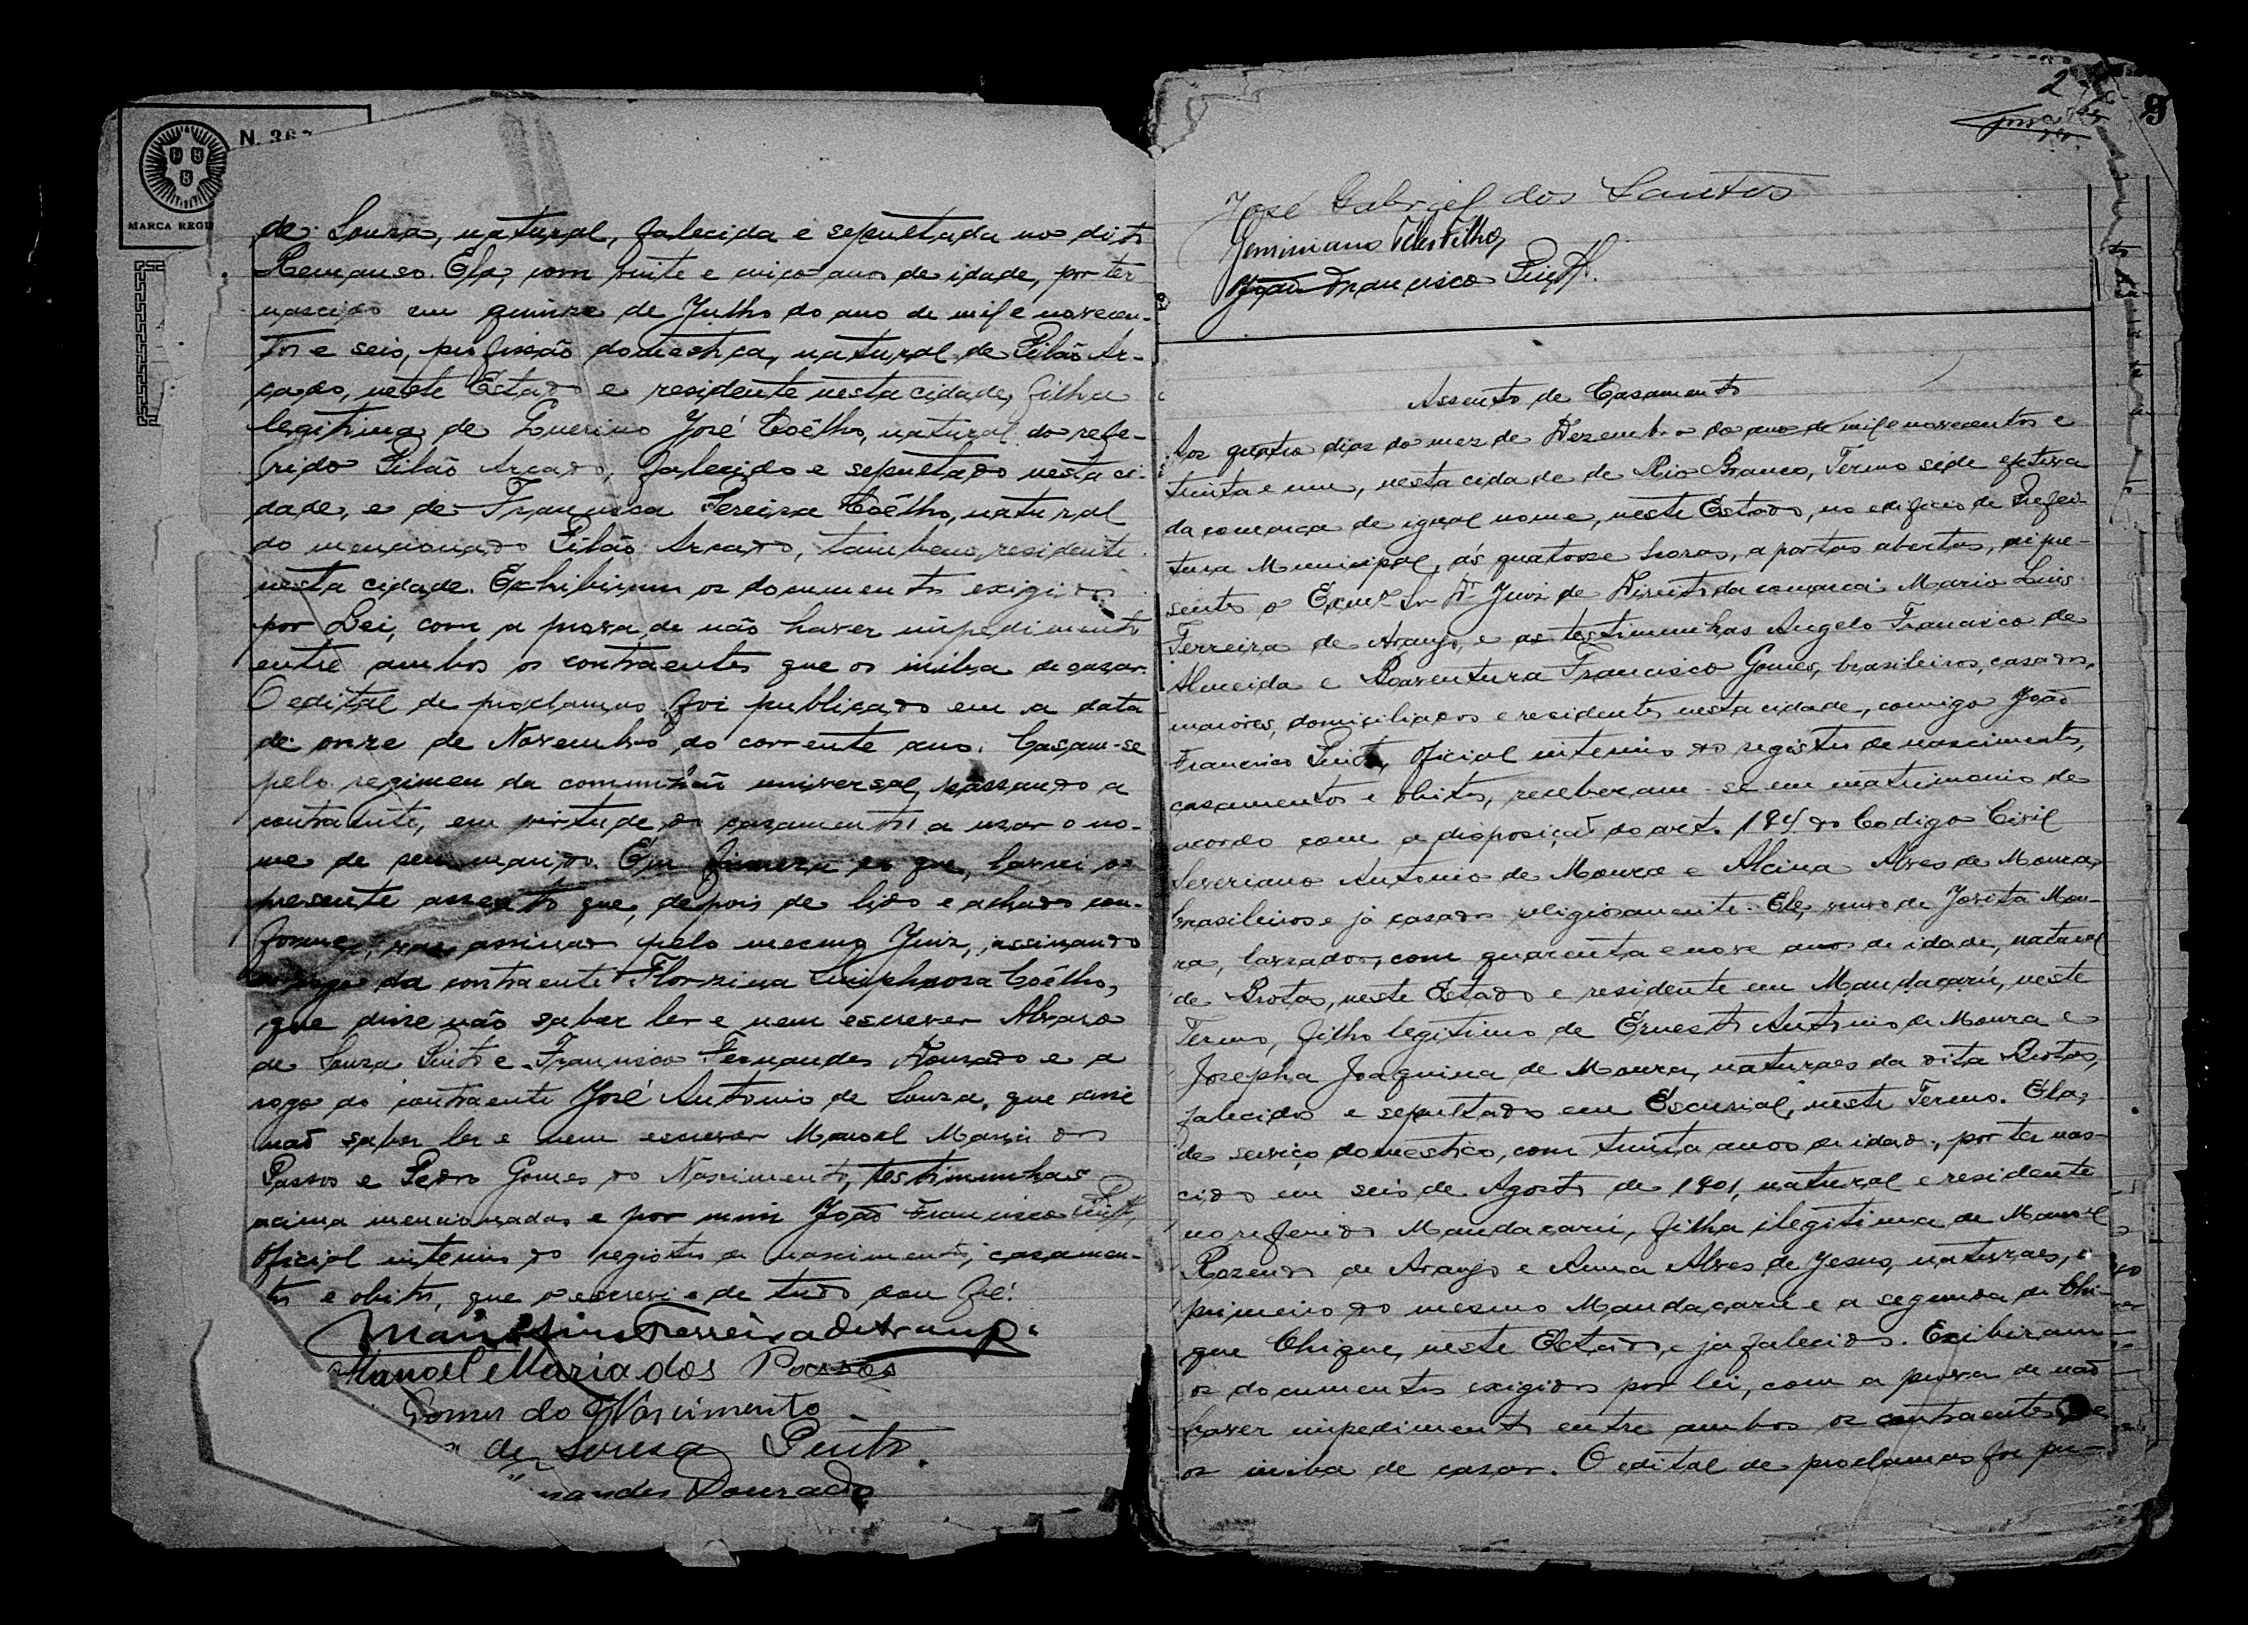 N. 36
MARCA REGI
de Souza, natural, falecida e sepultada no dito
Remanso. Ela, com vinte e cinco anos de idade, por ter
nascido em quinze de Julho do ano de mil e novecen-
tos e seis, profissão domestica, natural de Pilão Ar-
cado, neste Estado e residente nesta cidade, filha
legitima de Guerino José Coêlho, natural do refe-
rido Pilão Arcado, falecido e sepultado nesta ci-
dade, e de Francisca Pereira Coêlho, natural
do mencionado Pilão Arcado, tambem residente
nesta cidade. Exhibiram os documentos exigidos
por Lei, com a prova de não haver impedimento
entre ambos os contraentes que os iniba de casar.
O edital de proclamas foi publicado em a data
de onze de Novembro do corrente ano. Casam-se
pelo regimen da comunhão universal, passando a
contraente, em virtude do casamento, a usar o no-
me de seu marido. Em firmeza do que, lavrei o
presente assento que, depois de lido e achado con-
forme, vae assinado pelo mesmo Juiz, assinando
a rogo da contraente Florzina Coêlho,
que disse não saber ler e nem escrever Alvaro
de Souza Pinto e Francisco Fernandes Dourado e a
rogo do contraente José Antonio de Souza, que disse
não saber ler e nem escrever Manoel Maria dos
Passos e Pedro Gomes do Nascimento, testimunhas
acima mencionadas e por mim João Francisco Pinto,
Oficial interino do registro de nascimentos, casamen-
tos e obitos, que o escrevi e de tudo dou fé.
Mario Luis Ferreira de Araujo
Manoel Maria dos Passos
Gomes do Nascimento
de Souza Pinto
nandes Dourado
9
José Gabriel dos Santos
Geminiano Teles Filho
João Francisco Pinto.
Assento de Casamento
Aos quatro dias do mez de Dezembro do ano de mil e novecentos e
trinta e um, nesta cidade de Rio Branco, Termo séde efetiva
da comarca de igual nome, neste Estado, no edificio de Prefei-
tura Municipal, ás quatorze horas, a portas abertas, ai pre-
sente o Exmº Sr. Dr. Juiz de Direito da comarca Mario Luis
Ferreira de Araujo, e as testimunhas Angelo Francisco de
Almeida e Boaventura Francisco Gomes, brasileiros, casados,
maiores, domiciliados e residentes nesta cidade, comigo João
Francisco Pinto, Oficial interino do registro de nascimentos,
casamentos e obitos, receberam-se em matrimonio de
acordo com a disposição do art. 194 do Codigo Civil
Severiano Antonio de Moura e Alcina Alves de Moura,
brasileiros e já casados religiosamente. Ele, viuvo de Jovita Mou-
ra, lavrador, com quarenta e nove anos de idade, natural
de Brotas, neste Estado e residente em Mandacarú, neste
Termo, filho legitimo de Ernesto Antonio de Moura e
Josepha Joaquina de Moura, naturaes da dita Brotas,
falecidos e sepultados em Escurial, neste Termo. Ela,
de serviço domestico, com trinta anos de idade, por ter nas-
cido em seis de Agosto de 1901, natural e residente
no referido Mandacarú, filha ilegitima de Manoel
Rozendo de Araujo e Anna Alves de Jesus, naturaes, o
primeiro do mesmo Mandacarú e a segunda de Chi-
que Chique, neste Estado, e já falecidos. Exibiram
os documentos exigidos por lei, com a prova de não
haver impedimento entre ambos os contraentes que
os iniba de casar. O edital de proclamas foi pu-